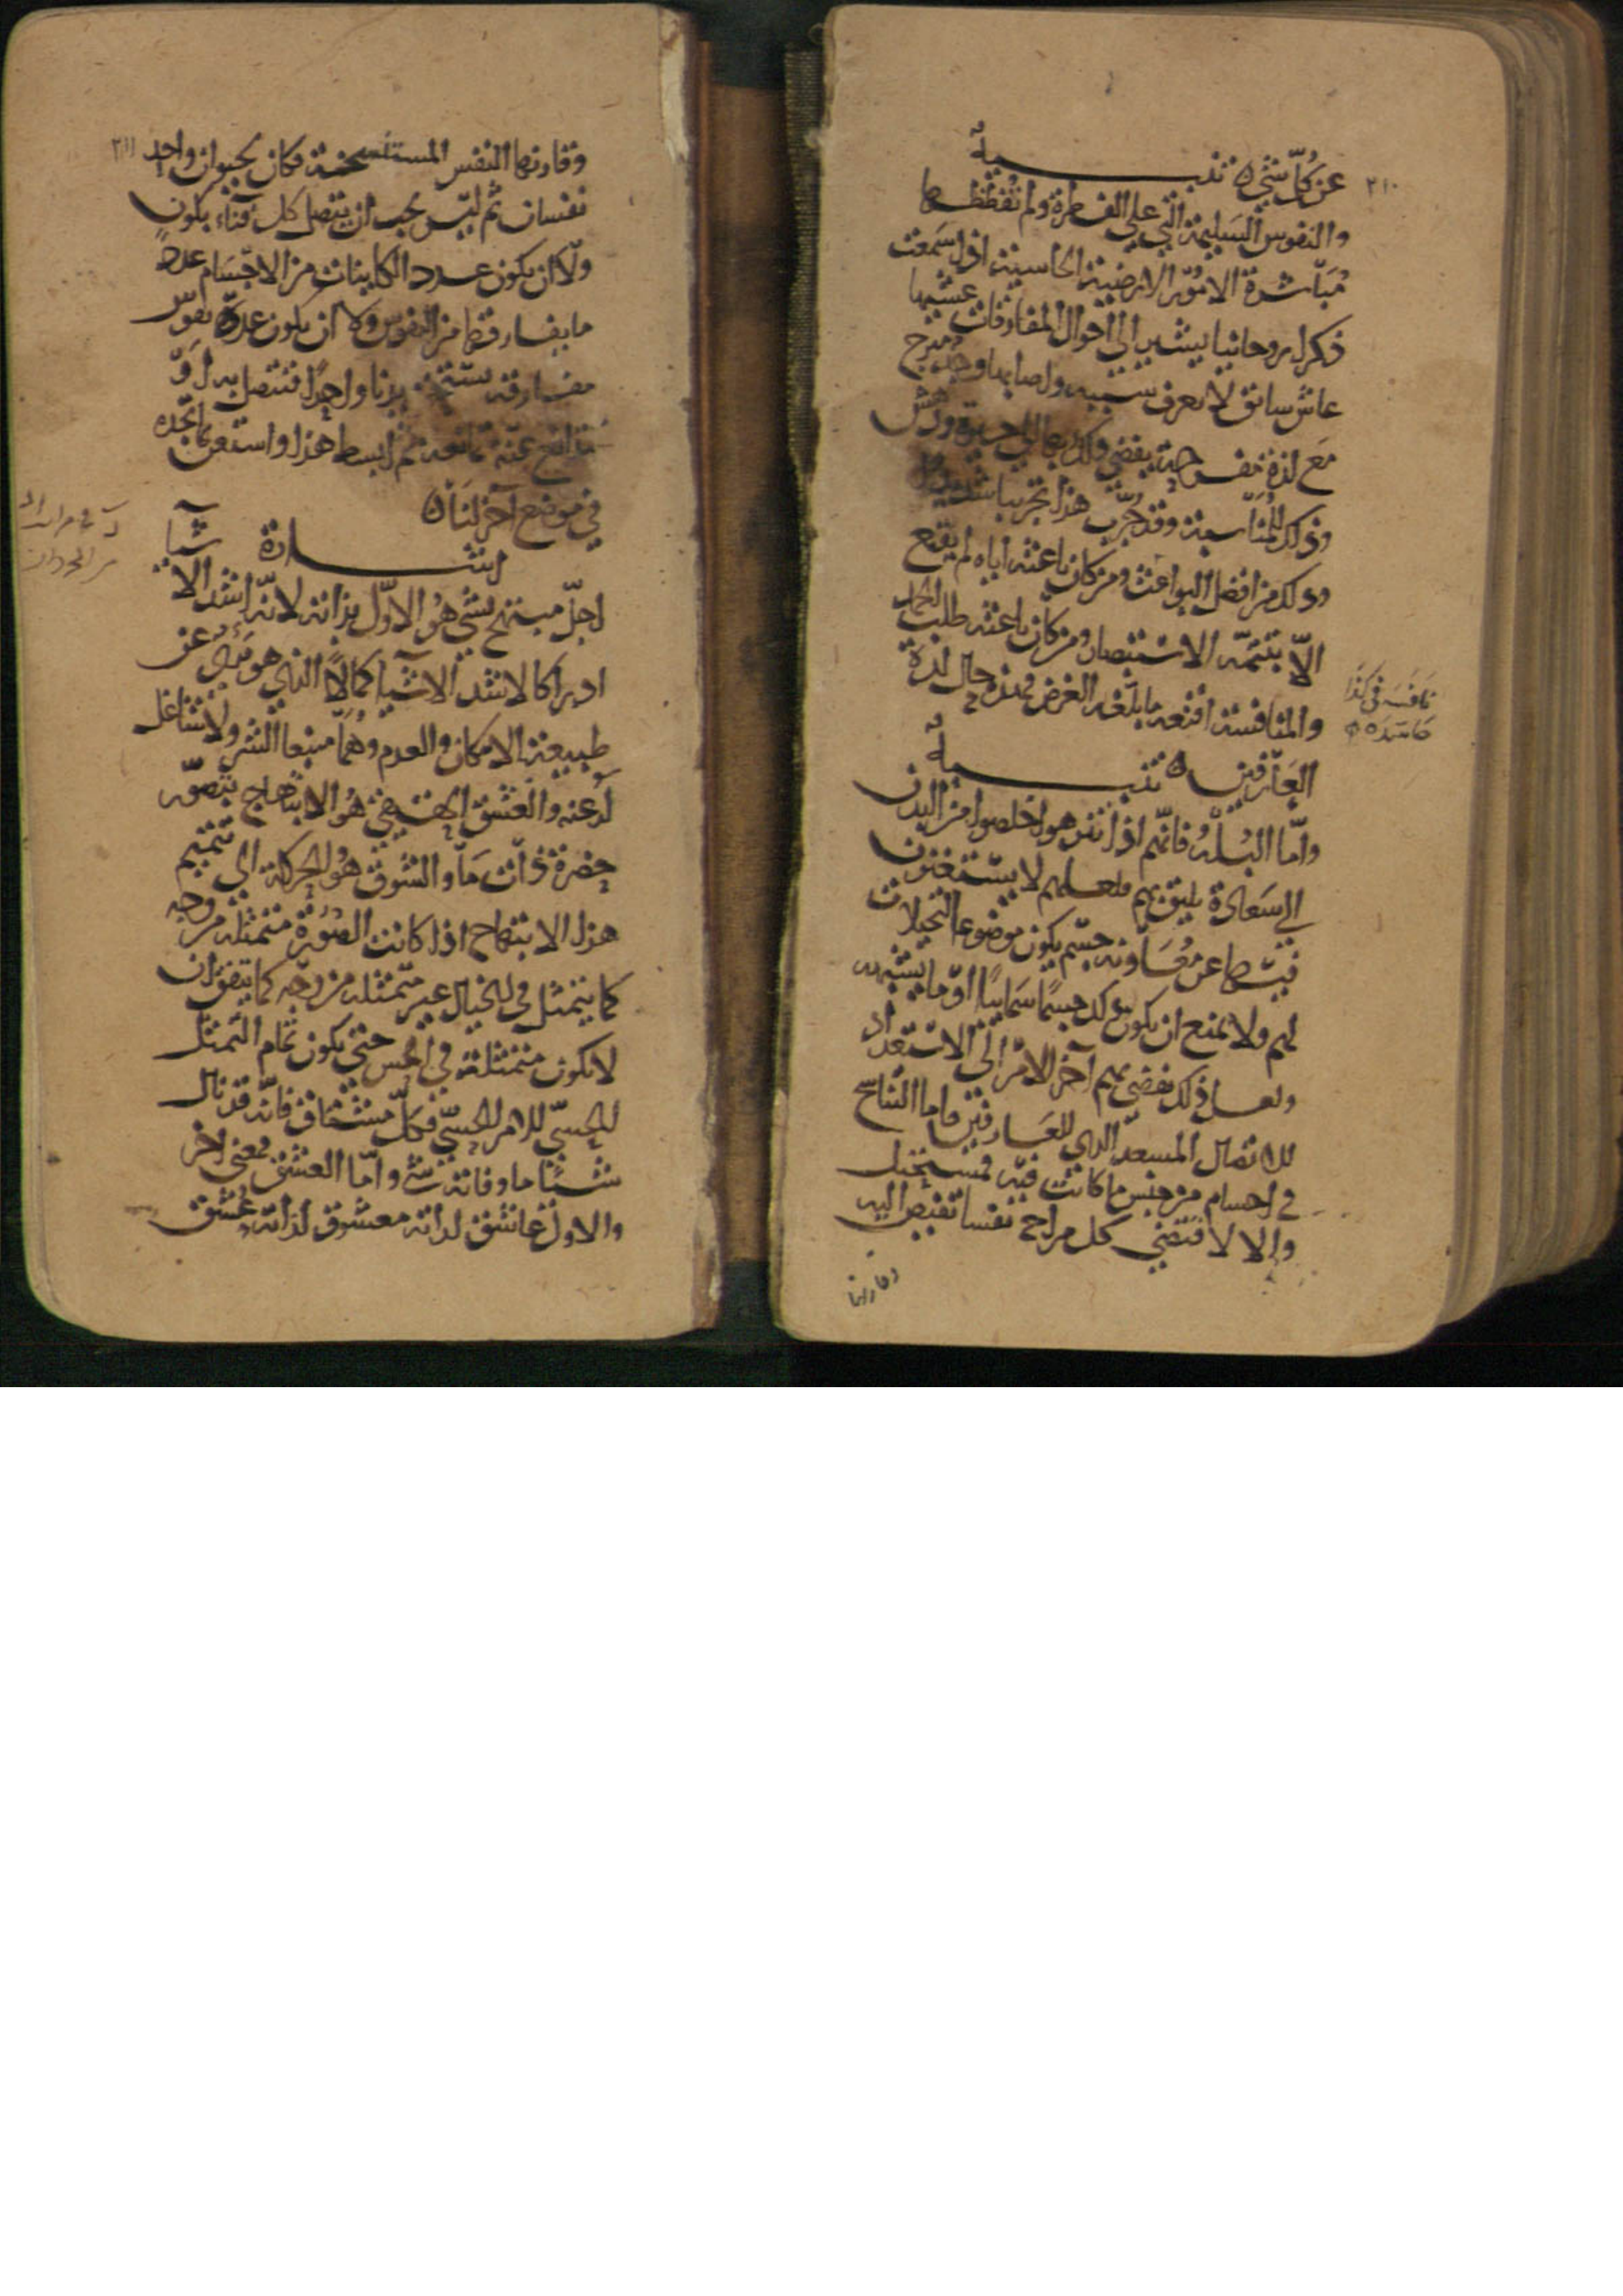 ٢١٠
عن كلّ شيء ٥ تنبيه
والنفوس السليمة التي على الفطرة ولم تُفظِّظها
مُبَاشرة الامُور الارضية الجاسية اذا سَمعت
ذكرا روحانيا يشير الى احوال المفارقات غشيها
غاش شائق لا يعرف سببه واصابها وجد مبرح
مَع لذة مفرحة يفضى ذلك بها الى حيرة ودهش
وذلك للمُنَاسبة وقد جُرِّب هذا تجريبا شديدا
وذلك من افضل البواعث ومن كان باعثه اياه لم يقنع
الّا بتتمّة الاستبصار ومن كان باعثه طلب الحمد
والمنافسة اقنعه ما بلّغه الغرض فهذه حال لذة
العَارفين ٥ تنبيه
وامّا البُلْهُ فانّهم اذا تنزهوا خلصوا من البدن
الى سَعَادة تليق بهم ولعلهم لا يستغنون
فيها عن مُعَاونة جسم يكون موضوعا لتخيلات
لهم ولا يمنع ان يكون ذلك جسمًا سَمَاييًا او ما يشبهه
ولعل ذلك يفضى بهم آخر الامر الى الاستعداد
للاتصال المسعد الذى للعَارفين فاما التناسخ
فى اجسام من جنس ما كانت فيه فمستحيل
والا لاقتضى كل مزاج نفسا تفيض اليه
وقارنها
نَافَسَه فى كذا
حَاسَدَه
٢١١
وقارنها النفس المستنسخة فكان لحيوان واحد
نفسان ثم ليس يجب ان يتصل كل فناء بكون
ولا ان يكون عدد الكاينات من الاجسام عدد
ما يفارقها من النفوس ولا ان يكون عدّة نفوس
مفارقة تستحق بدنا واحدًا فتتصل به او
تتدافع عنه ثم ابسط هذا واستعن بما تجده
فى موضع آخر لنا ٥
اشارة
اجلّ مبتهج بشىء هُو الاوّل بذاته لانّه اشد الاشيا
ادراكا لاشد الاشيآ كمالًا الذى هو بَرِىءٌ عن
طبيعة الامكان والعدم وهُمَا منبعا الشر ولا شاغل
له عنه والعشق الحقيقى هُو الابتهاج بتصوّر
حضرة ذات مَا والشوق هُو الحركة الى تتميم
هذا الابتهاج اذا كانت الصُورة متمثلة من وجه
كما يتمثل فى الخيال غير متمثلة من وجه كما يتفق ان
لا تكون متمثلة فى الحس حتى يكون تمام التمثل
الحِسّى للامر الحِسّى فكلّ مشتاق فانّه قد نال
شيئا ما وفاته شىء وامّا العشق فمعنى اخر
والاول عاشق لذاته معشوق لذاته عُشق